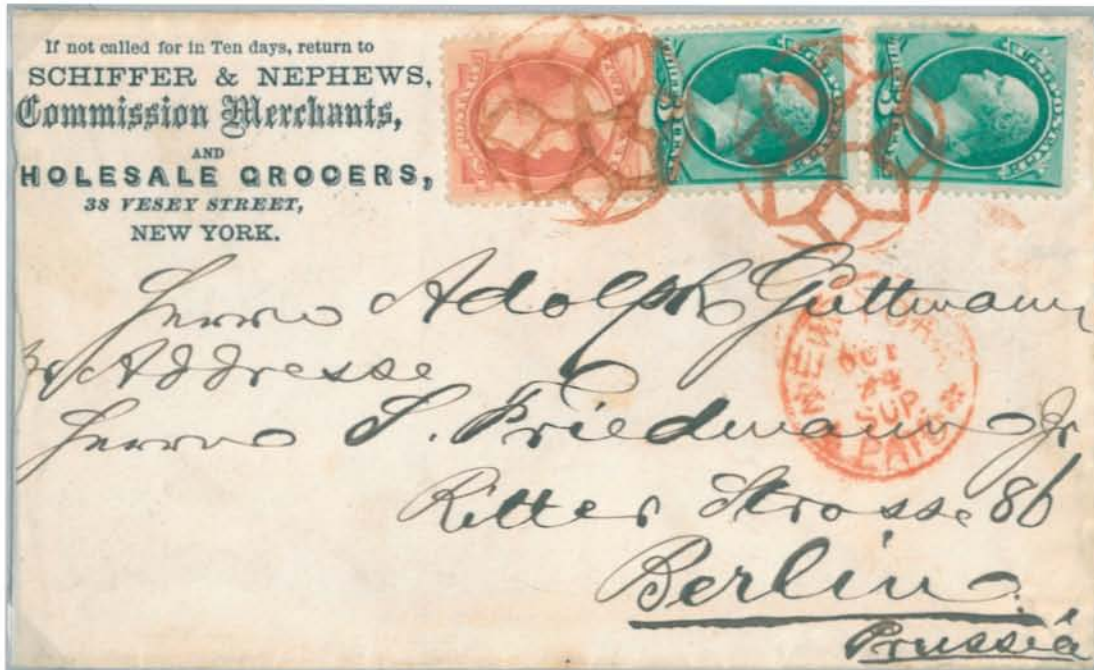 If not called for in Ten days, return to
SCHIFFER & NEPHEWS,
Commission Merchants,
AND
HOLESALE GROCERS,
38 VESEY STREET,
NEW YORK.
NEW YORK
OCT
24
SUP.
PAID
Herrn Adolph Guttmann
pr Addresse
Herrn S. Friedmann Jr
Ritter Strasse 86
Berlin
Prussia